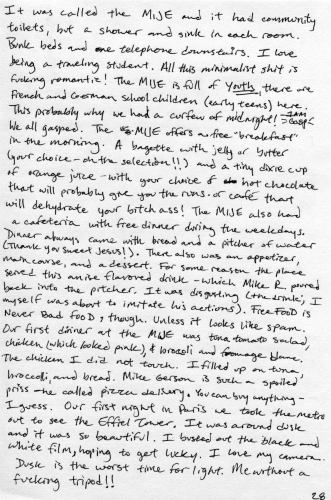 It was called the MIJE and it had community
toilets, but a shower and sink in each room.
Bunk beds and one telephone downstairs. I love
being a traveling student. All this minimalist shit is
fucking romantic! The MIJE is full of Youth, there are
French and German school children (early teens) here.
This probably why we had a curfew of midnight! 1AM
We all gasped. The MIJE offers a free "breakfast"
in the morning. A bagette with jelly or butter
(your choice - oh the selection!!) and a tiny dixie cup
of orange juice - with your choice of hot chocolate
that will probably give you the runs. or café that
will dehydrate your bitch ass! The MIJE also had
a cafeteria with free dinner during the weekdays.
Dinner always came with bread and a pitcher of water
(Thank you sweet Jesus!). There also was an appetizer,
main course, and a dessert. For some reason the place
served this anise flavored drink - which Mike R. poured
back into the pitcher. It was disgusting (the drink; I
myself was about to imitate his actions). Free Food is
Never Bad FooD, though. Unless it looks like spam.
Our first dinner at the MIJE was tuna tomato salad,
chicken (which looked pink), & broccoli and fromage blanc.
The chicken I did not touch. I filled up on tuna,
broccoli, and bread. Mike Gerson is such a spoiled
priss - he called pizza delivery. You can buy anything -
I guess. Our first night in Paris we took the metro
out to see the Effiel Tower. It was around dusk
and it was so beautiful. I busted out the black and
white film, hoping to get lucky. I love my camera.
Dusk is the worst time for light. Me without a
fucking tripod!!
28